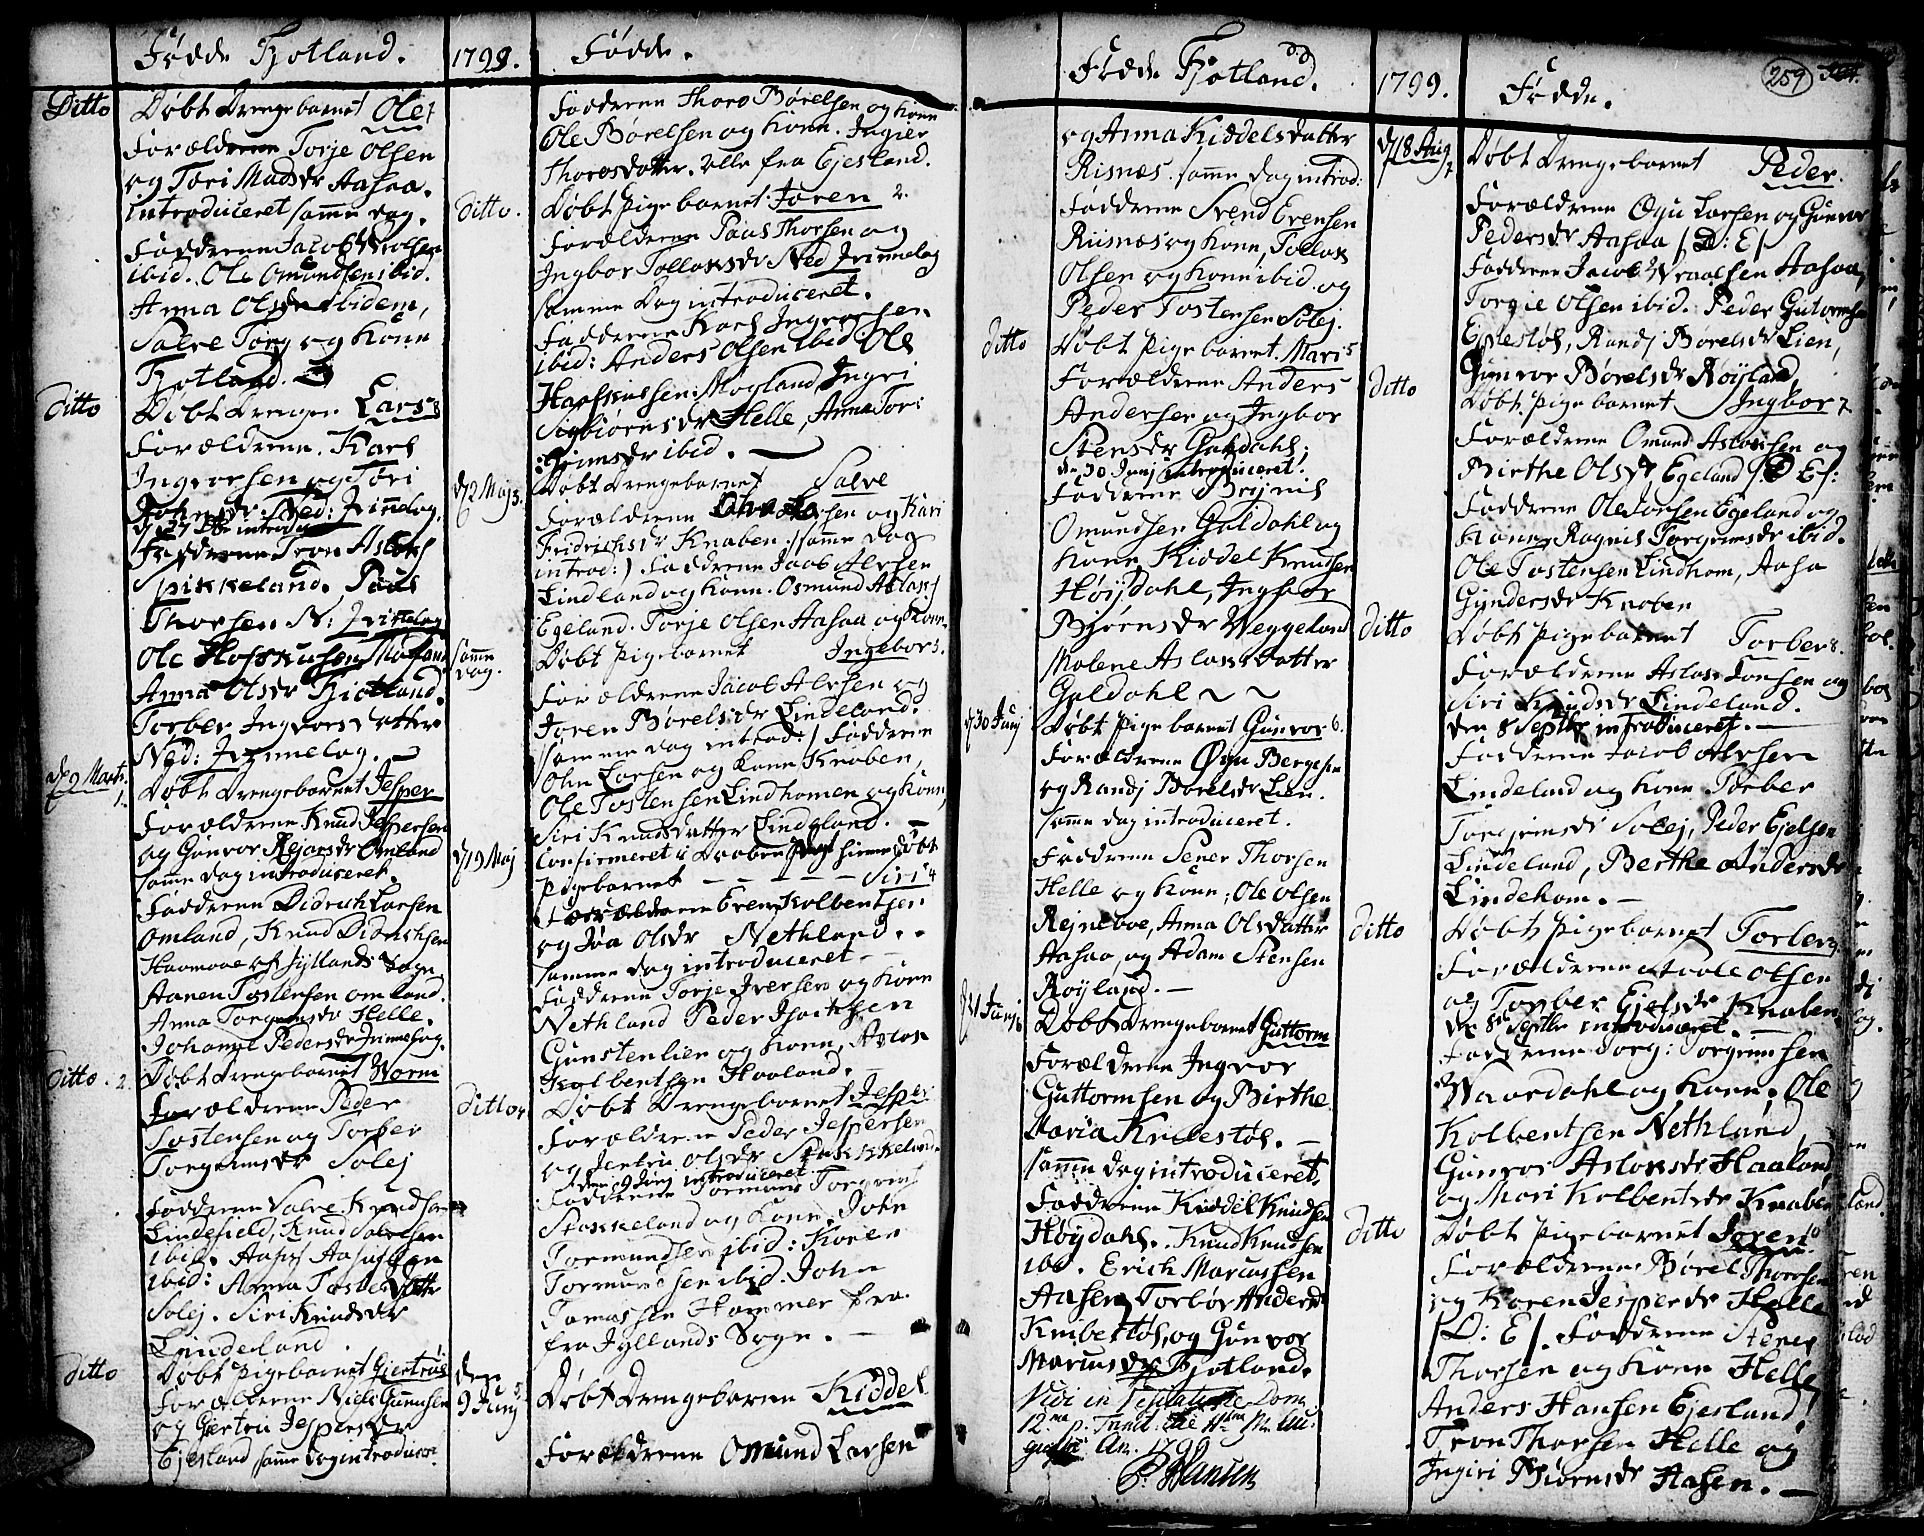 Fødde Fjotland.
Ditto
Døbt Drengebarnet Ole
Forældrene Torje Olsen
og Tori Madsdr Aasaa.
introduceret samme dag.
Fadderne Jacob
ibid. Ole Omundsen ibid.
Anna Olsdr ibidem,
Salve Torg og Kone
Fjotland.
Ditto
Døbt Drengeb. Lars
Forældrene. Karl
Ingvorsen og Tori
Johnsdr Ned: Jrinnelag.
d 27 introd
Fadderne Tron Aslaks
Spikkeland. Paus
Thorsen N: Jrinnelag
Ole Mosland
Anna Olsdr Fjotland.
Torber Ingvorsdatter
Ned: Jrinnelag.
d. 9 Marts
1.
Døbt Drengebarnet Jesper
Forældrene Knud Jespersen
og Gunvor Omland
samme dag introduceret.
Fadderne Didrich Larsen
Omland, Knud Didrichsen
af Fyllands Sogn
Aanen Tostensen Omland.
Anna Torgrimsdr Helle.
Johanne Pedersdr Jrinnelag.
Ditto. 2.
Døbt Drengebarnet Worm
Forældrene Peder
Tostensen og Torber
Torgrimsdr Solej
Fadderne Salve Knudsen
Lindefield, Knud Salvesen
ibid. Aasul
ibid: Anna Tostensdatter
Solej. Siri Knudsdr
Lindeland.
Ditto
Døbt Pigebarnet Giertrud
Forældrene Niels Gunnufsen
og Giertru Jespersdr
Ejesland, samme dag introducer.
1799.
Fødde.
Fadderne Thore Børelsen og Kone
Ole Børelsen og Kone. Ingier
Thoresdatter. alle fra Ejesland.
Ditto.
Døbt Pigebarnet Joren 2.
Forældrene Paus Thorsen og
Ingbor Tollaksdr Ned Jrinnelag
samme Dag introduceret.
Fadderne Karl Ingvorsen
ibid: Anders Olsen ibid Ole
Mosland, Ingri
Sigbiørnsdr Helle, Anna Tor:
ibid.
d 2 Maj 3.
Døbt Drengebarnet Salve
Forældrene Larsen og Kari
Fridrichsdr Knaben. /: samme dag
introd:/ Fadderne Jacob Alvsen
Lindland og Kone. Osmund Aslaks
Egeland. Torje Olsen Aasaa og Kone
samme
dag.
Døbt Pigebarnet Ingebor 3.
Forældrene Jacob Alvsen og
Joren Børelsdr Lindeland.
samme dag introd:/ Fadderne
Ohn Larsen og Kone Knaben,
Ole Tostensen Lindhomen og Kone,
Siri Knudsdatter Lindeland.
d 19 Maj
Confirmeret i hiemmedøbt
Pigebarnet — — — — — Siri 4
Forældrene Even Kolbentsen
og Joa Olsdr Nethland.
samme dag introduceret
Fadderne Torje Iversen og Kone
Nethland Peder
Gunstenlien og Kone, Aslak
Kolbentsen Haaland.
Ditto 4
Døbt Drengebarnet Jesper
Forældrene Peder Jespersen
og Jertru Olsdr Stakkeland
den 9 Junj introduceret
Fadderne Tormun Torgrims
Stakkeland og Kone, John
Tormundsen ibid: Koren
ibid. John
Tomassen Hammer fra
fra Fyllands Sogn.
den
9 Junj 5
Døbt Drengebarnet Kiddel
Forældrene Omund Larsen
Fødde Fjotland.
og Anna Kiddelsdatter
Risnæs. samme dag introd:
Fadderne Svend Evensen
Risnæs og Kone, Tollak
Olsen og Kone ibid og
Peder Tostensen Solej.
ditto
Døbt Pigebarnet. Mari 5
Forældrene Anders
Andersen og Ingbor
Stensdr Guldahl,
de 30 Junj introduceret.
Fadderne Brynil
Omundsen Guldahl og
Kone, Kiddel Knudsen
Høijdahl, Ingbor
Bjørnsdr Veggeland
Malene Aslaksdatter
Guldahl ~ ~
d 30 Junj
Døbt Pigebarnet Gunvor 6.
Forældrene Øyu Bergesen
og Randj Børelsdr Lien.
samme dag introduceret.
Fadderne Sener Thorsen
Helle og Kone; Ole Olsen
Rejneboe, Anna Olsdatter
Aasaa, og Adam Stensen
Røyland. —
Døbt Drengebarnet Guttorm
Forældrene Ingvor
Guttormsen og Birthe
Maria Knibestøl. —
samme dag introduceret,
Fadderne Kiddel Knudsen
Høydahl. Knud Knudsen
ibd. Erich Marcussen
Aasen, Torbor Andersdr
Knibestøl, og Gunvor
Marcusdr Fjotland.
Vidi in Visitatione Dom.
12.ma p. Trinit.
An. 1799
P. Hansen
1799.
Fødde.
259
d 18 Aug
7
Døbt Drengebarnet Peder.
Forældrene Øyu Larsen og Gunvor
Pedersdr Aasaa /D: E/
Fadderne Jacob Aasaa,
Torgie Olsen ibid. Peder Gutormsen
Randj Børelsdr Lien,
Gunvor Børelsdr Røyland,
ditto
Døbt Pigebarnet Ingbor 7
Forældrene Omund Aslaksen og
Birthe Olsdr Egeland /: D E/:
Fadderne Ole Egeland og
Kone Ragnil Torgrimsdr ibid.
Ole Tostensen Lindhom, Aasa
Gundersdr Knaben
Ditto
Døbt Pigebarnet Torber 8.
Forældrene Aslak og
Siri Knudsdr Lindeland.
den 8 Septbr introduceret. —
Fadderne Jacob Alvsen
Lindeland og Kone Torber
Torgrimsdr Solej, Peder Ejelsen
Lindeland, Berthe Andersdr
Lindehom. —
ditto
Døbt Pigebarnet Torber 9.
Forældrene Olsen
og Torber Knaben
den 8de Septbr introduceret. —
Fadderne Torg: Torgrimsen
og Kone. Ole
Kolbentsen Nethland,
Gunvor Aslaksdr Haaland
og Mari Kolbentsdr Knaben
ditto
Døbt Pigebarnet Joren 10
Forældrene Børel Thorsen
og Koren Jespersdr Helle
/D: E/. Fadderne Stener
Thorsen og Kone Helle,
Anders Hansen Ejesland,
Tron Thorsen Helle og
Ingiri Biørnsdr Aasen. —